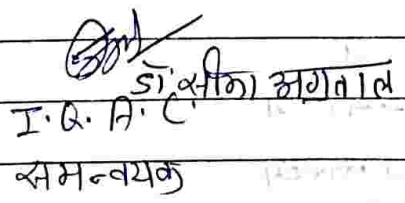 डॉ. सीमा अग्रवाल
I. Q. A. C.
समन्वयक